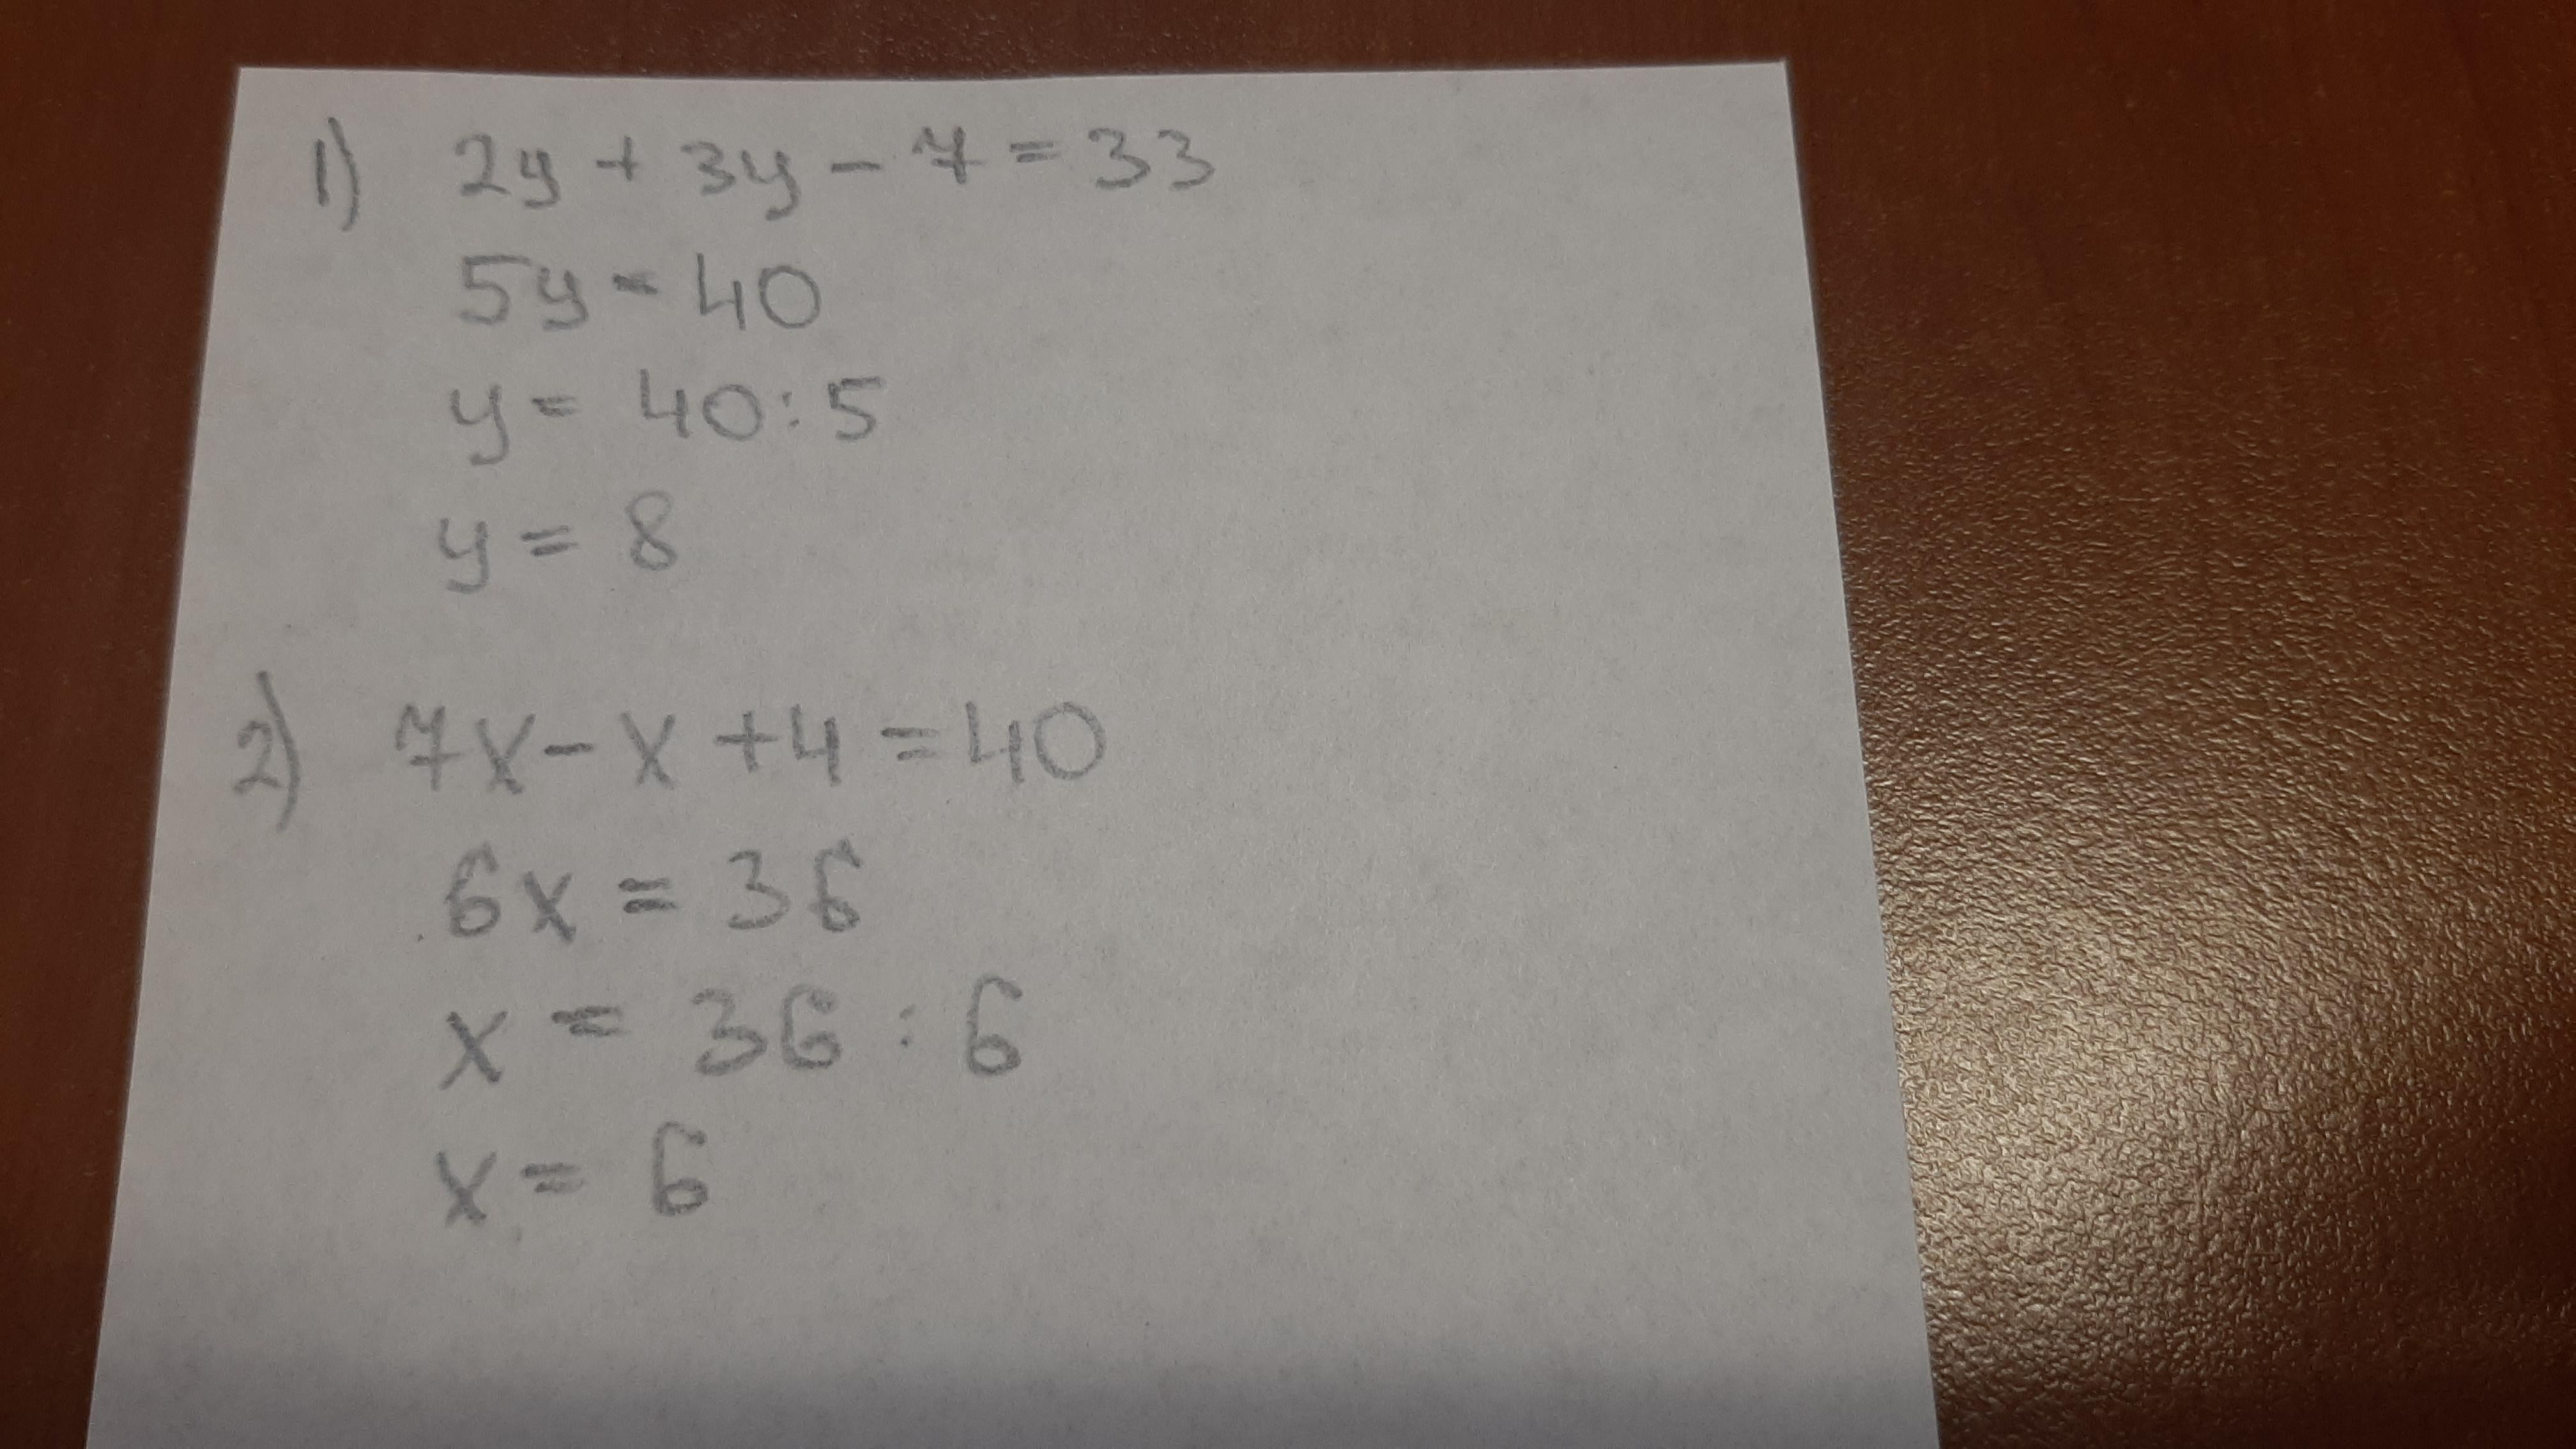 1) 2y + 3y - 7 = 33
5y = 40
y = 40 : 5
y = 8
2) 7x - x + 4 = 40
6x = 36
x = 36 : 6
x = 6